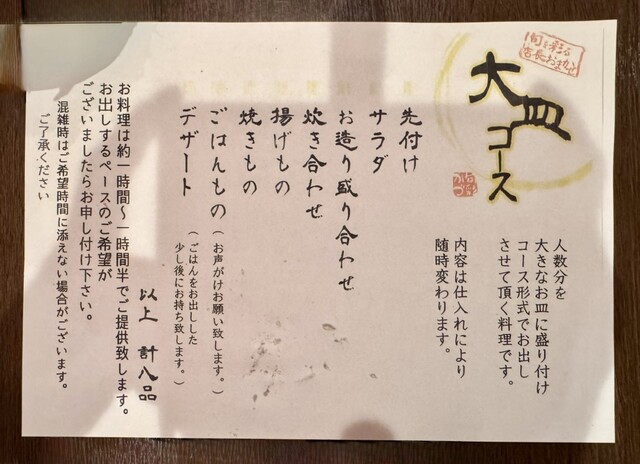 旬を彩る
店長おまかせ
大皿コース
人数分を
大きなお皿に盛り付け
コース形式でお出し
させて頂く料理です。
内容は仕入れにより
随時変わります。
先付け
サラダ
お造り盛り合わせ
炊き合わせ
揚げもの
焼きもの
ごはんもの(お声がけお願い致します。)
デザート(ごはんをお出しした
少し後にお持ち致します。)
以上 計八品
お料理は約一時間～一時間半でご提供致します。
お出しするペースのご希望が
ございましたらお申し付け下さい。
混雑時はご希望時間に添えない場合がございます。
ご了承ください